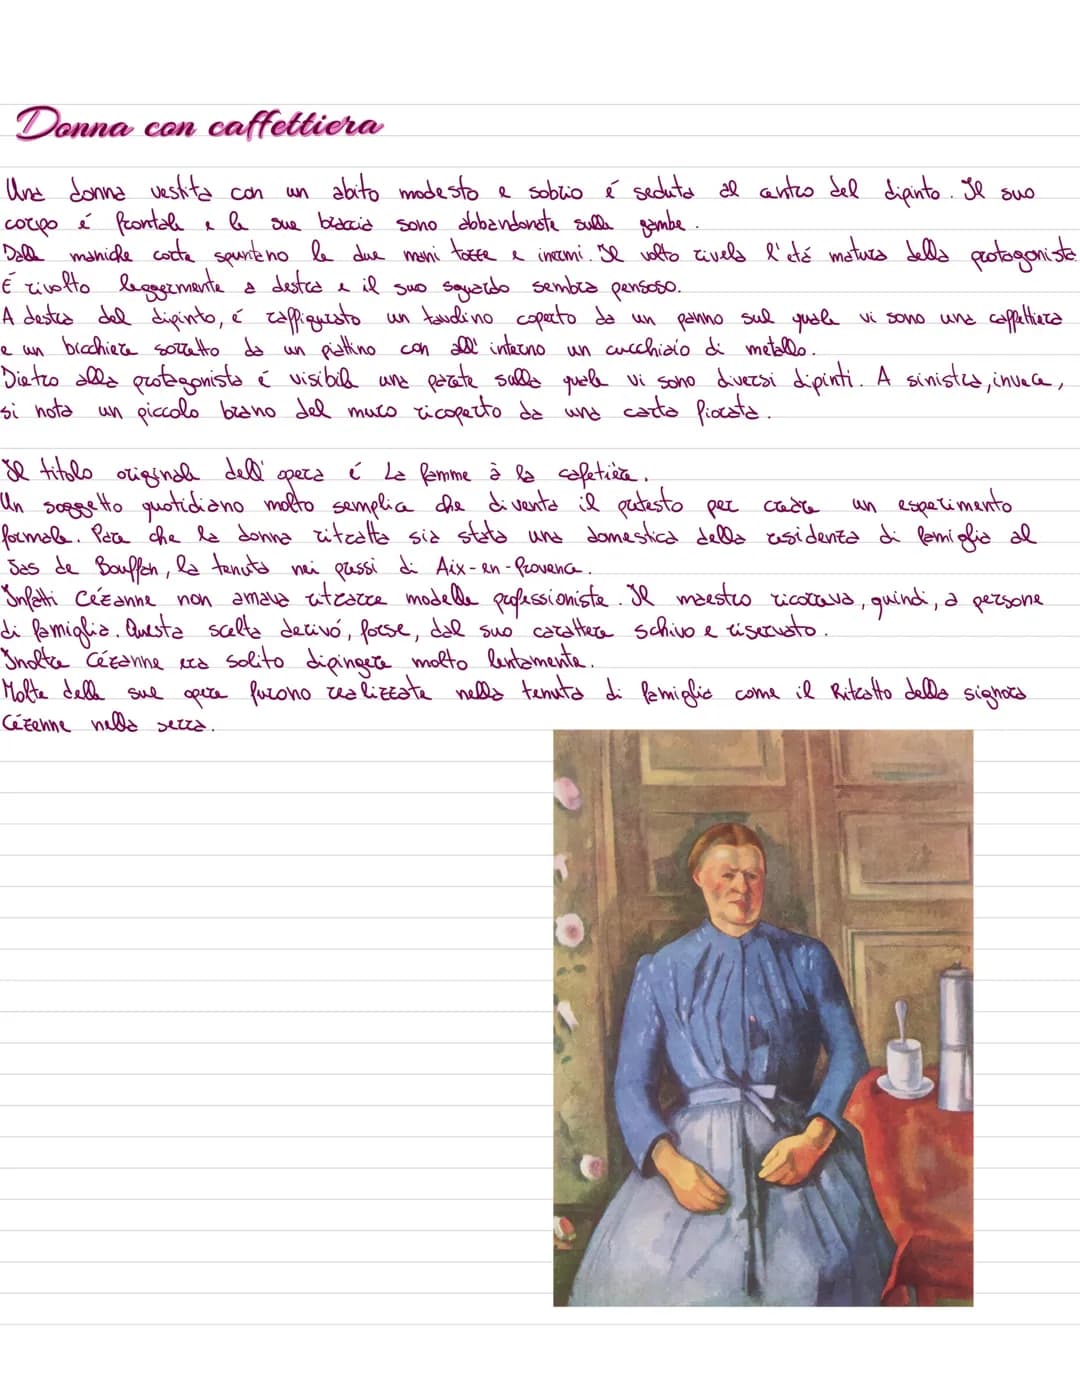 Donna con caffettiera
Una donna vestita con un abito modesto e sobrio é seduta al centro del dipinto. Il suo
corpo é frontale e le sue braccia sono abbandonate sulle gambe.
Dalle maniche corte spuntano le due mani tozze e inermi. Il volto rivela l'etá matura della protagonista.
É rivolto leggermente a destra e il suo sguardo sembra pensoso.
A destra del dipinto, é raffigurato un tavolino coperto da un panno sul quale vi sono una caffettiera
e un bicchiere sorretto da un piattino con all'interno un cucchiaio di metallo.
Dietro alla protagonista é visibile una parete sulla quale vi sono diversi dipinti. A sinistra, invece,
si nota un piccolo brano del muro ricoperto da una carta fiorata.
Il titolo originale dell'opera é La femme à la cafetière.
Un soggetto quotidiano molto semplice che diventa il pretesto per creare un esperimento
formale. Pare che la donna ritratta sia stata una domestica della residenza di famiglia al
Jas de Bouffon, la tenuta nei pressi di Aix-en-Provence.
Infatti Cézanne non amava ritrarre modelle professioniste. Il maestro ricorreva, quindi, a persone
di famiglia. Questa scelta derivó, forse, dal suo carattere schivo e riservato.
Inoltre Cézanne era solito dipingere molto lentamente.
Molte delle sue opere furono realizzate nella tenuta di famiglia come il Ritratto della signora
Cézanne nella serra.